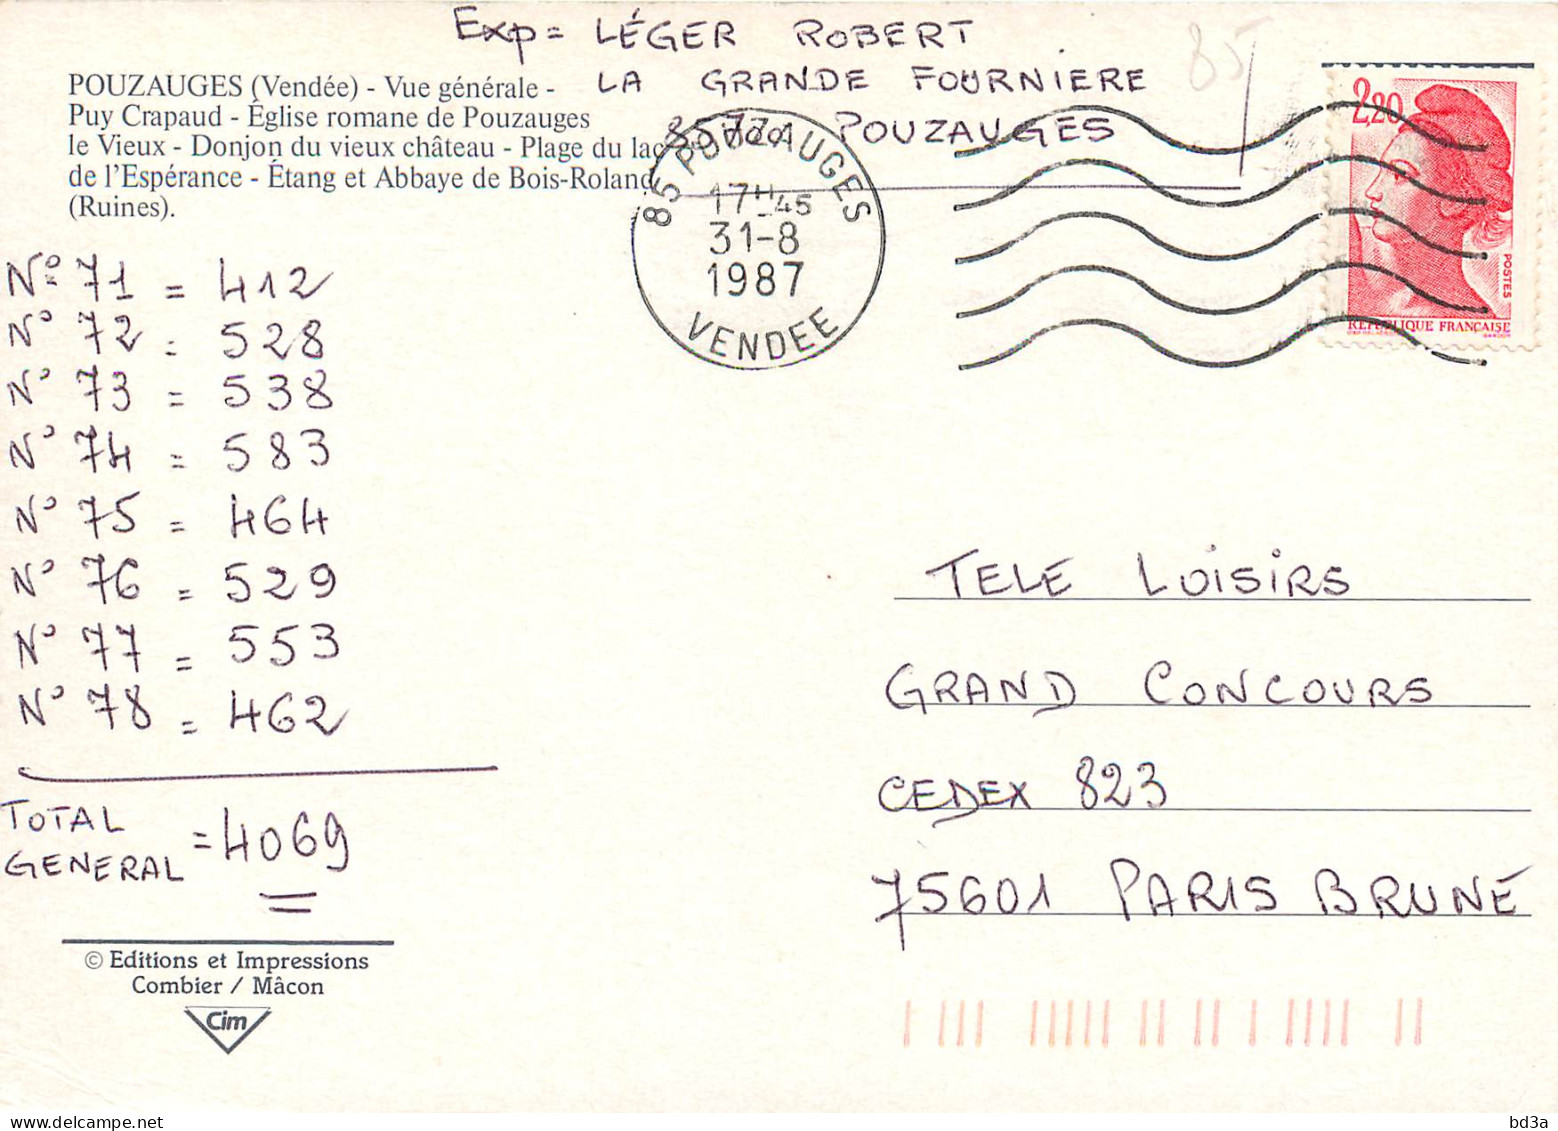 Exp = LÉGER ROBERT
LA GRANDE FOURNIERE
85700 POUZAUGES
85
POUZAUGES (Vendée) - Vue générale -
Puy Crapaud - Église romane de Pouzauges
le Vieux - Donjon du vieux château - Plage du lac
de l'Espérance - Étang et Abbaye de Bois-Roland
(Ruines).
85 POUZAUGES
17H45
31-8
1987
VENDEE
2,20
POSTES
REPUBLIQUE FRANCAISE
N° 71 = 412
N° 72 = 528
N° 73 = 538
N° 74 = 583
N° 75 = 464
N° 76 = 529
N° 77 = 553
N° 78 = 462
TOTAL
GENERAL = 4069
TELE LOISIRS
GRAND CONCOURS
CEDEX 823
75601 PARIS BRUNE
© Editions et Impressions
Combier / Mâcon
Cim
bd3a